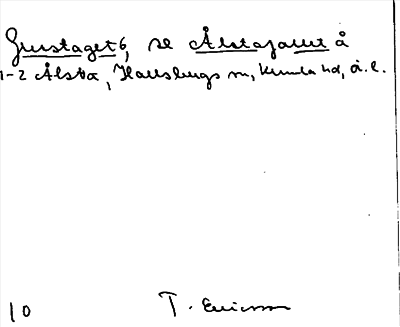 Grustaget 6, se Ålstaforset å
1-2 Ålsta, Hallsbergs sn, Kumla hd, ö.l.
10 T. Ericsson